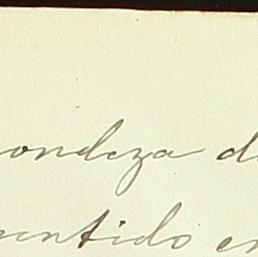 ondeza d
entido en